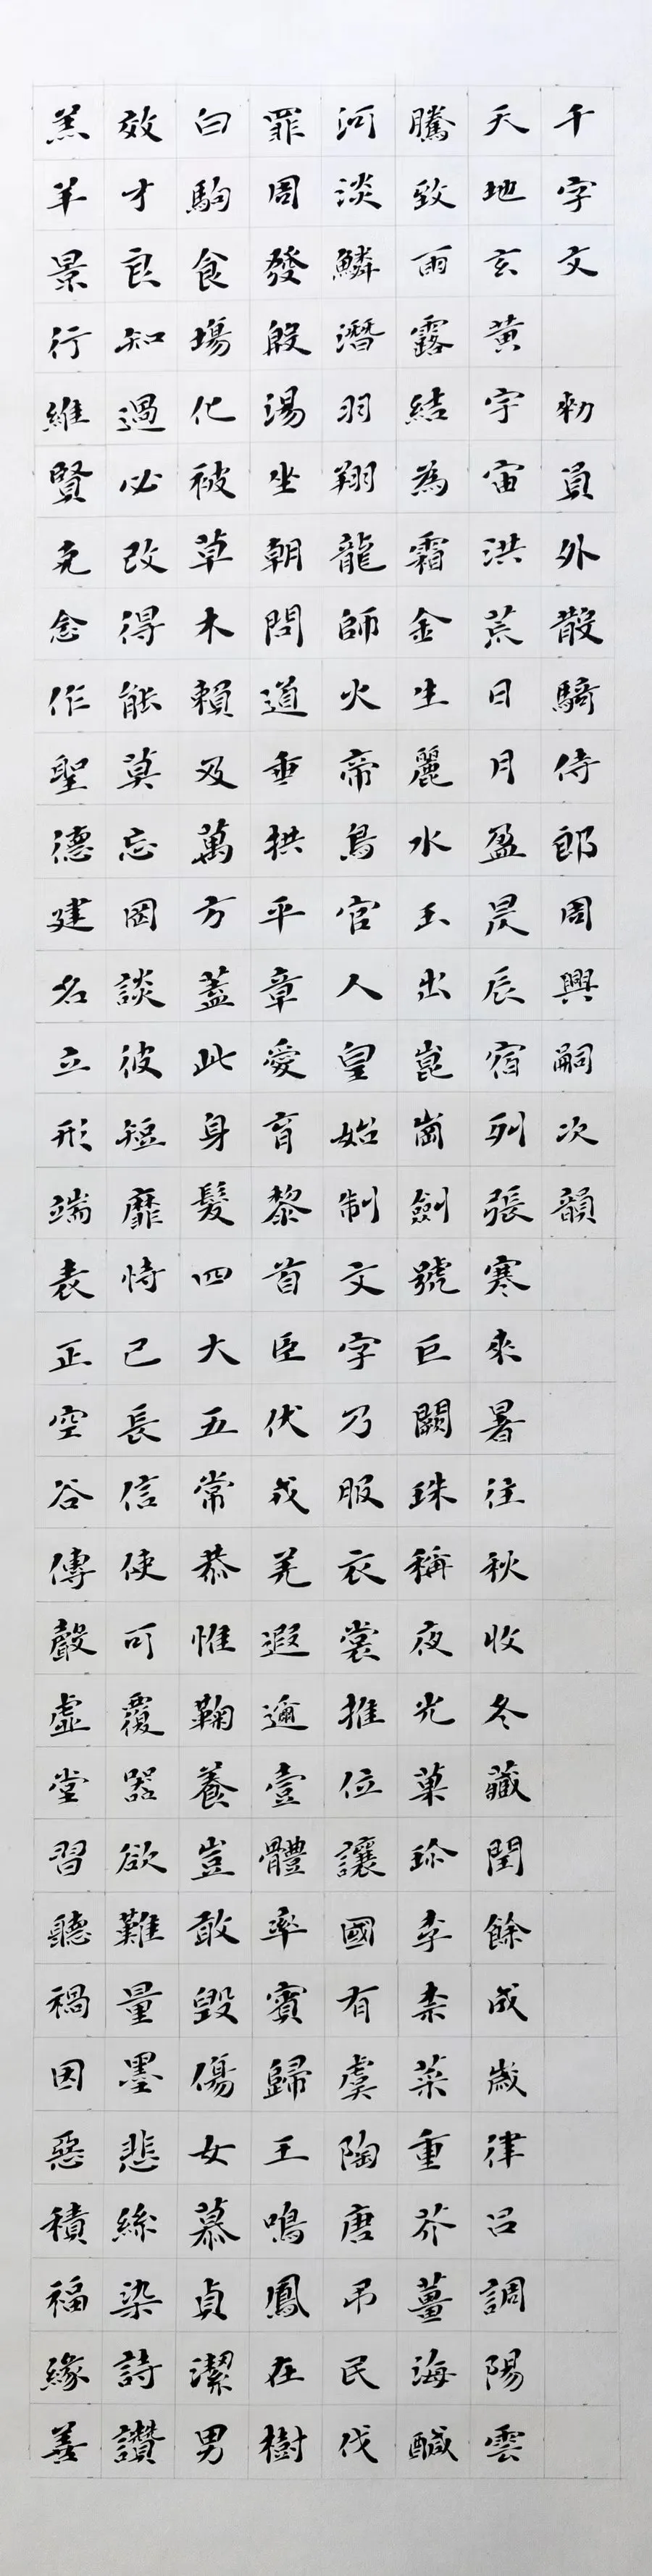 千字文 勑員外散騎侍郎周興嗣次韻
天地玄黃宇宙洪荒日月盈昃辰宿列張寒來暑往秋收冬藏閏餘成歲律呂調陽雲
騰致雨露結為霜金生麗水玉出崑崗劍號巨闕珠稱夜光菓珍李柰菜重芥薑海醎
河淡鱗潛羽翔龍師火帝鳥官人皇始制文字乃服衣裳推位讓國有虞陶唐吊民伐
罪周發殷湯坐朝問道垂拱平章愛育黎首臣伏戎羌遐邇壹體率賓歸王鳴鳳在樹
白駒食場化被草木賴及萬方蓋此身髮四大五常恭惟鞠養豈敢毀傷女慕貞潔男
效才良知過必改得能莫忘罔談彼短靡恃己長信使可覆器欲難量墨悲絲染詩讚
羔羊景行維賢克念作聖德建名立形端表正空谷傳聲虛堂習聽禍因惡積福緣善